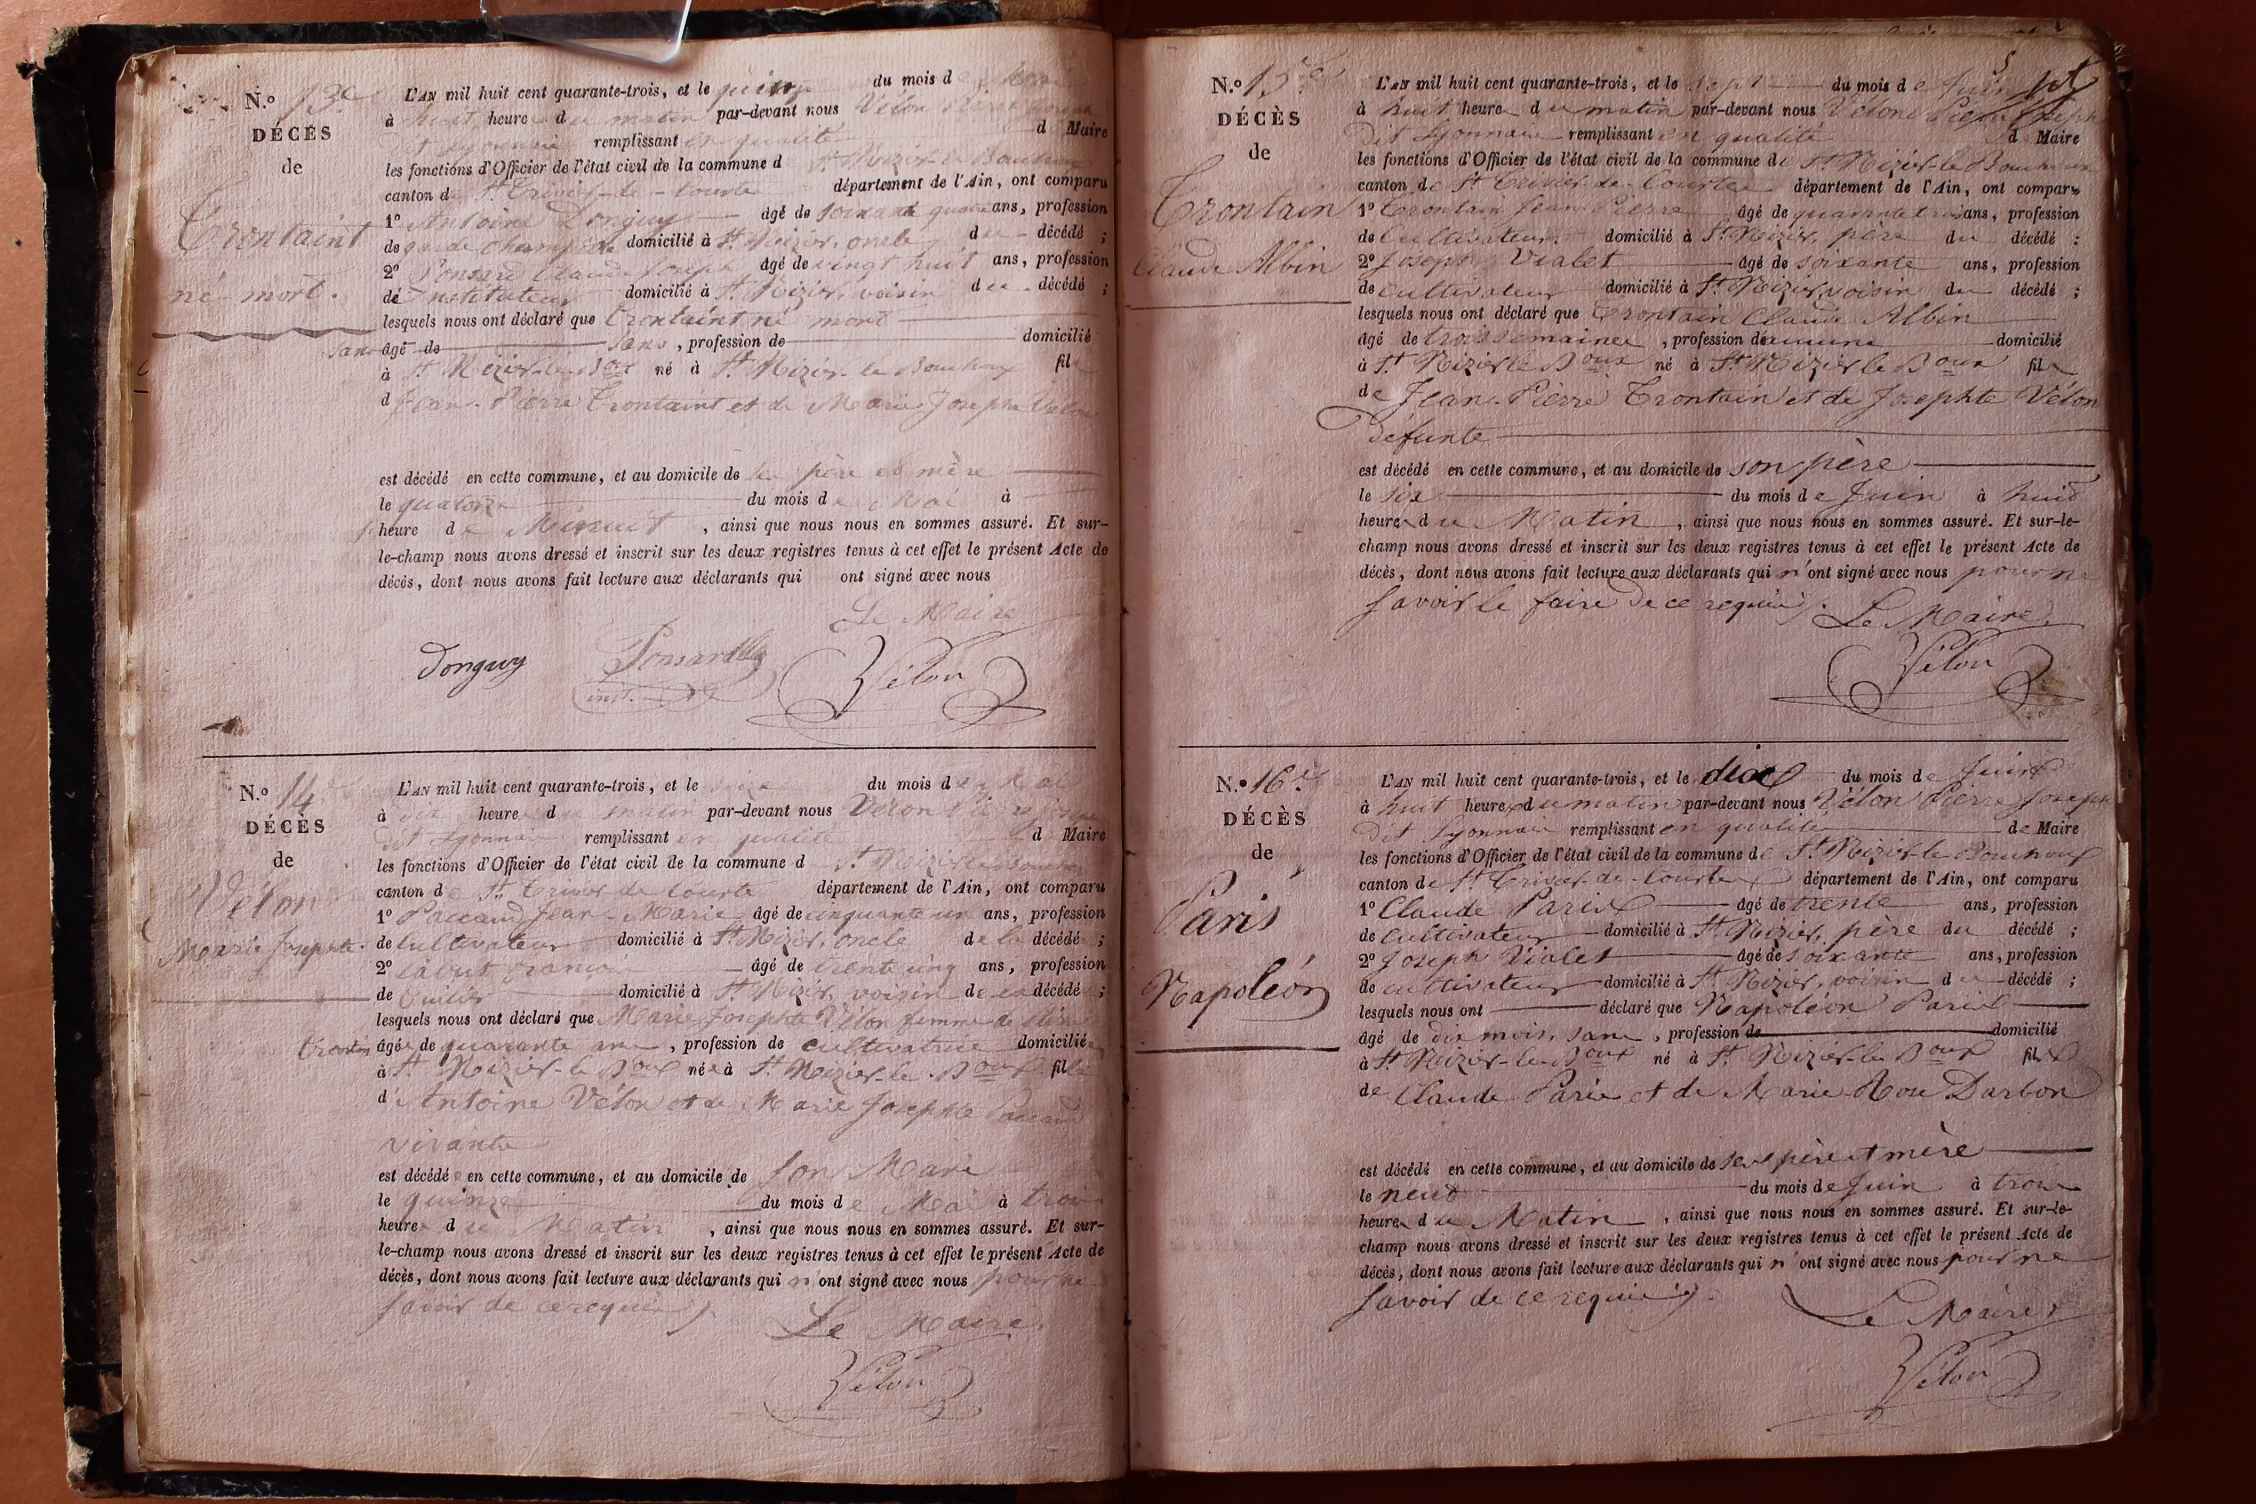 N.o 13e
DÉCÈS
de
Trontaint
né mort.
L'AN mil huit cent quarante-trois, et le quinze du mois de Mai
à huit heure du matin par-devant nous Vélon Pierre Joseph
dit Lyonnais remplissant en qualité d Maire
les fonctions d'Officier de l'état civil de la commune d St. Nizier-le-Bouhoux
canton de St. Trivier-de-Courte département de l'Ain, ont comparu
1o Antoine Donguy âgé de soixante quatre ans, profession
de garde champêtre domicilié à St. Nizier, oncle du décédé ;
2o Ponsard Claude Joseph âgé de vingt huit ans, profession
dé Instituteur domicilié à St. Nizier, voisin du décédé ;
lesquels nous ont déclaré que Trontaint né mort
sans âgé de sans, profession de domicilié
à St. Nizier-le-Boux né à St. Nizier-le Bouhoux fils
d Jean-Pierre Trontaint et de Marie Josephe Vélon
est décédé en cette commune, et au domicile de ses père et mère
le quatorze du mois de Mai à
heure de Minuit, ainsi que nous nous en sommes assuré. Et sur-
le-champ nous avons dressé et inscrit sur les deux registres tenus à cet effet le présent Acte de
décès, dont nous avons fait lecture aux déclarants qui ont signé avec nous
Le Maire
Donguy Ponsard Vélon
inst.
N.o 14e
DÉCÈS
de
Vélon
Marie Josephte.
L'AN mil huit cent quarante-trois, et le seize du mois de Mai
à dix heure du matin par-devant nous Vélon Pierre Joseph
dit Lyonnais remplissant en qualité d Maire
les fonctions d'Officier de l'état civil de la commune d St. Nizier-le-Bouhoux
canton de St. Trivier de Courte département de l'Ain, ont comparu
1o Paccaud Jean-Marie âgé de cinquante un ans, profession
de Cultivateur domicilié à St. Nizier, oncle de la décédée ;
2o Cabut François âgé de trente cinq ans, profession
de Tuilier domicilié à St. Nizier, voisin de la décédée ;
lesquels nous ont déclaré que Marie Josephte Vélon femme de Pierre
Trontin âgée de quarante ans, profession de cultivatrice domiciliée
à St. Nizier-le Boux née à St. Nizier-le-Boux fille
d'Antoine Vélon et de Marie Josephte Paccaud
vivante
est décédée en cette commune, et au domicile de son Mari
le quinze du mois de Mai à trois
heures du Matin, ainsi que nous nous en sommes assuré. Et sur-
le-champ nous avons dressé et inscrit sur les deux registres tenus à cet effet le présent Acte de
décès, dont nous avons fait lecture aux déclarants qui n'ont signé avec nous pour ne
savoir de ce requis.
Le Maire,
Vélon
N.o 15e
DÉCÈS
de
Trontain
Claude Albin
5
L'AN mil huit cent quarante-trois, et le sept du mois de Juin
à huit heure du matin par-devant nous Vélon Pierre Joseph
dit Lyonnais remplissant en qualité d Maire
les fonctions d'Officier de l'état civil de la commune de St. Nizier-le Bouhoux
canton de St Trivier-de-Courte département de l'Ain, ont comparu
1o Trontain Jean Pierre âgé de quarante trois ans, profession
de Cultivateur domicilié à St. Nizier, père du décédé ;
2o Joseph Vialet âgé de soixante ans, profession
de cultivateur domicilié à St. Nizier, voisin du décédé ;
lesquels nous ont déclaré que Trontain Claude Albin
âgé de trois semaines, profession d'aucune domicilié
à St. Nizier le Boux né à St. Nizier le Boux fils
de Jean-Pierre Trontain et de Josephte Vélon
défunte
est décédé en cette commune, et au domicile de son père
le six du mois de Juin à huit
heures du Matin, ainsi que nous nous en sommes assuré. Et sur-le-
champ nous avons dressé et inscrit sur les deux registres tenus à cet effet le présent Acte de
décès, dont nous avons fait lecture aux déclarants qui n'ont signé avec nous pour ne
savoir le faire de ce requis.
Le Maire,
Vélon
N.o 16e
DÉCÈS
de
Paris
Napoléon
L'AN mil huit cent quarante-trois, et le dix du mois de Juin
à huit heures du matin par-devant nous Vélon Pierre Joseph
dit Lyonnais remplissant en qualité de Maire
les fonctions d'Officier de l'état civil de la commune de St. Nizier-le Bouhoux
canton de St. Trivier-de-Courte département de l'Ain, ont comparu
1o Claude Paris âgé de trente ans, profession
de cultivateur domicilié à St. Nizier, père du décédé ;
2o Joseph Vialet âgé de soixante ans, profession
de cultivateur domicilié à St. Nizier, voisin du décédé ;
lesquels nous ont déclaré que Napoléon Paris
âgé de dix mois, sans, profession de domicilié
à St. Nizier-le-Boux né à St. Nizier-le Boux fils
de Claude Paris et de Marie Rose Darbon
est décédé en cette commune, et au domicile de ses père et mère
le neuf du mois de Juin à trois
heures du Matin, ainsi que nous nous en sommes assuré. Et sur-le-
champ nous avons dressé et inscrit sur les deux registres tenus à cet effet le présent Acte de
décès, dont nous avons fait lecture aux déclarants qui n'ont signé avec nous pour ne
savoir de ce requis.
Le Maire
Vélon